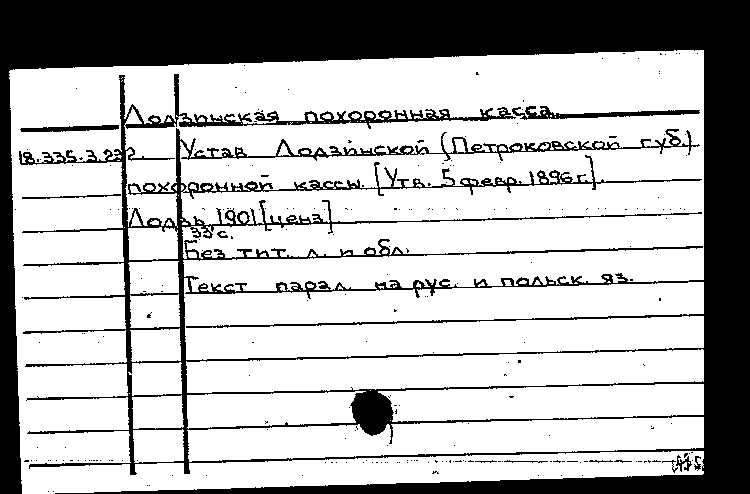 Лодзинская похоронная касса.
18.335.3.222. Устав Лодзинской (Петроковской губ.)
похоронной кассы. [Утв. 5 февр. 1896 г.].
Лодзь, 1901 [ценз]
33 с.
Без тит. л. и обл.
Текст парал. на рус. и польск. яз.